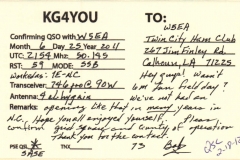 KG4YOU
TO:
Confirming QSO with W5EA
W5EA
Month 6 Day 25 Year 2011
Twin City Ham Club
UTC 2154 MHz 50.145
267 Jim Finley Rd
RST 59 MODE SSB
Calhoun, LA 71225
Workedas: 1E-NC
Hey guys! Wasn't
Transceiver 746pro@90W
6M fun field day?
Antenna
We've not had an
Remarks: opening like that in many years in
N.C. Hope you all enjoyed yourself. Please
confirm grid square and County of operation
Thank you for the contact.
PSE QSL
TNX
73 Bob
QSL
2-18-12